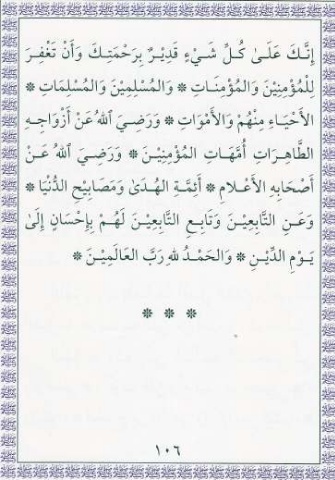 إِنَّكَ عَلَىٰ كُلِّ شَيْءٍ قَدِيْرٌ بِرَحْمَتِكَ وَأَنْ تَغْفِرَ
لِلْمُؤْمِنِيْنَ وَالْمُؤْمِنَاتِ * وَالْمُسْلِمِيْنَ وَالْمُسْلِمَاتِ *
الأَحْيَاءِ مِنْهُمْ وَالأَمْوَاتِ * وَرَضِيَ اللهُ عَنْ أَزْوَاجِهِ
الطَّاهِرَاتِ أُمَّهَاتِ الْمُؤْمِنِيْنَ * وَرَضِيَ اللهُ عَنْ
أَصْحَابِهِ الأَعْلَامِ * أَئِمَّةِ الْهُدَىٰ وَمَصَابِيْحِ الدُّنْيَا *
وَعَنِ التَّابِعِيْنَ وَتَابِعِ التَّابِعِيْنَ لَهُمْ بِإِحْسَانٍ إِلَىٰ
يَوْمِ الدِّيْنِ * وَالْحَمْدُ لِلهِ رَبِّ الْعَالَمِيْنَ *
* * *
١٠٦